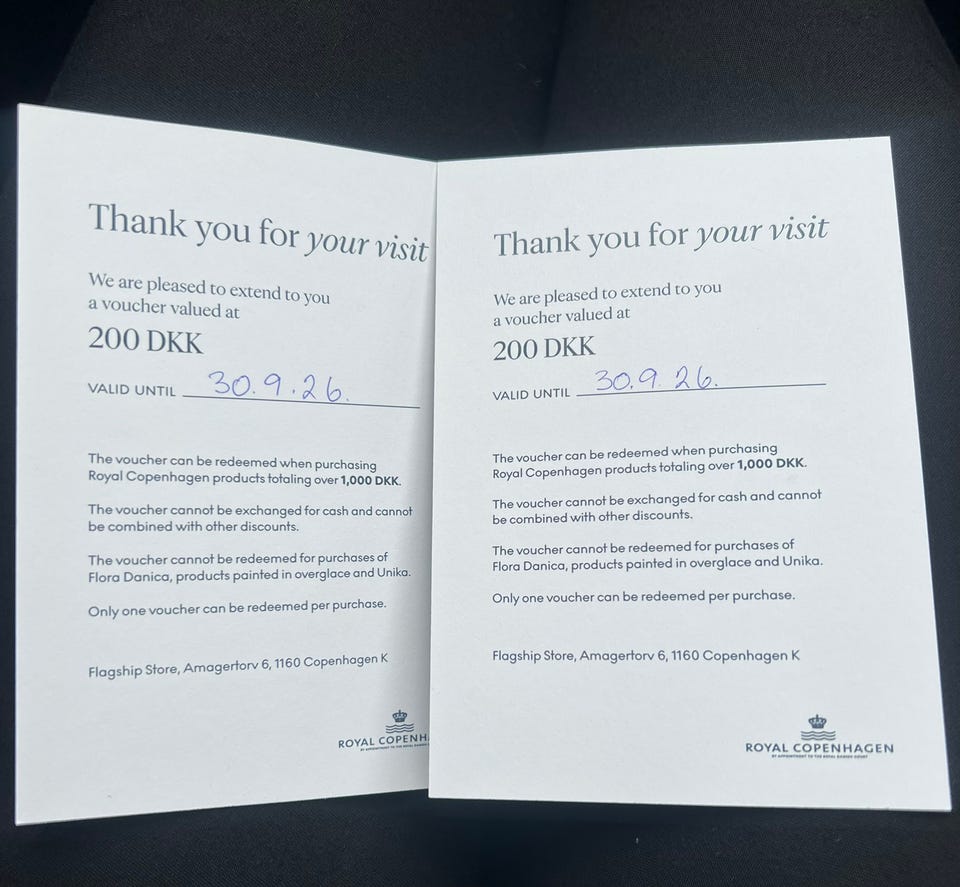 Thank you for your visit
We are pleased to extend to you
a voucher valued at
200 DKK
VALID UNTIL 30.9.26.
The voucher can be redeemed when purchasing
Royal Copenhagen products totaling over 1,000 DKK.
The voucher cannot be exchanged for cash and cannot
be combined with other discounts.
The voucher cannot be redeemed for purchases of
Flora Danica, products painted in overglace and Unika.
Only one voucher can be redeemed per purchase.
Flagship Store, Amagertorv 6, 1160 Copenhagen K
ROYAL COPENH
Thank you for your visit
We are pleased to extend to you
a voucher valued at
200 DKK
VALID UNTIL 30.9.26.
The voucher can be redeemed when purchasing
Royal Copenhagen products totaling over 1,000 DKK.
The voucher cannot be exchanged for cash and cannot
be combined with other discounts.
The voucher cannot be redeemed for purchases of
Flora Danica, products painted in overglace and Unika.
Only one voucher can be redeemed per purchase.
Flagship Store, Amagertorv 6, 1160 Copenhagen K
ROYAL COPENHAGEN
BY APPOINTMENT TO THE ROYAL DANISH COURT